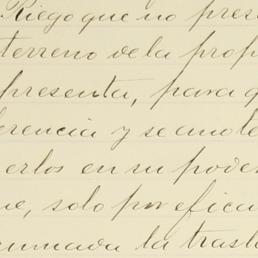 Riego que no pres
terreno de la prop
presenta, para q
erencia y se anote
erlos en su poder
ue, solo por efica
umada la trasl